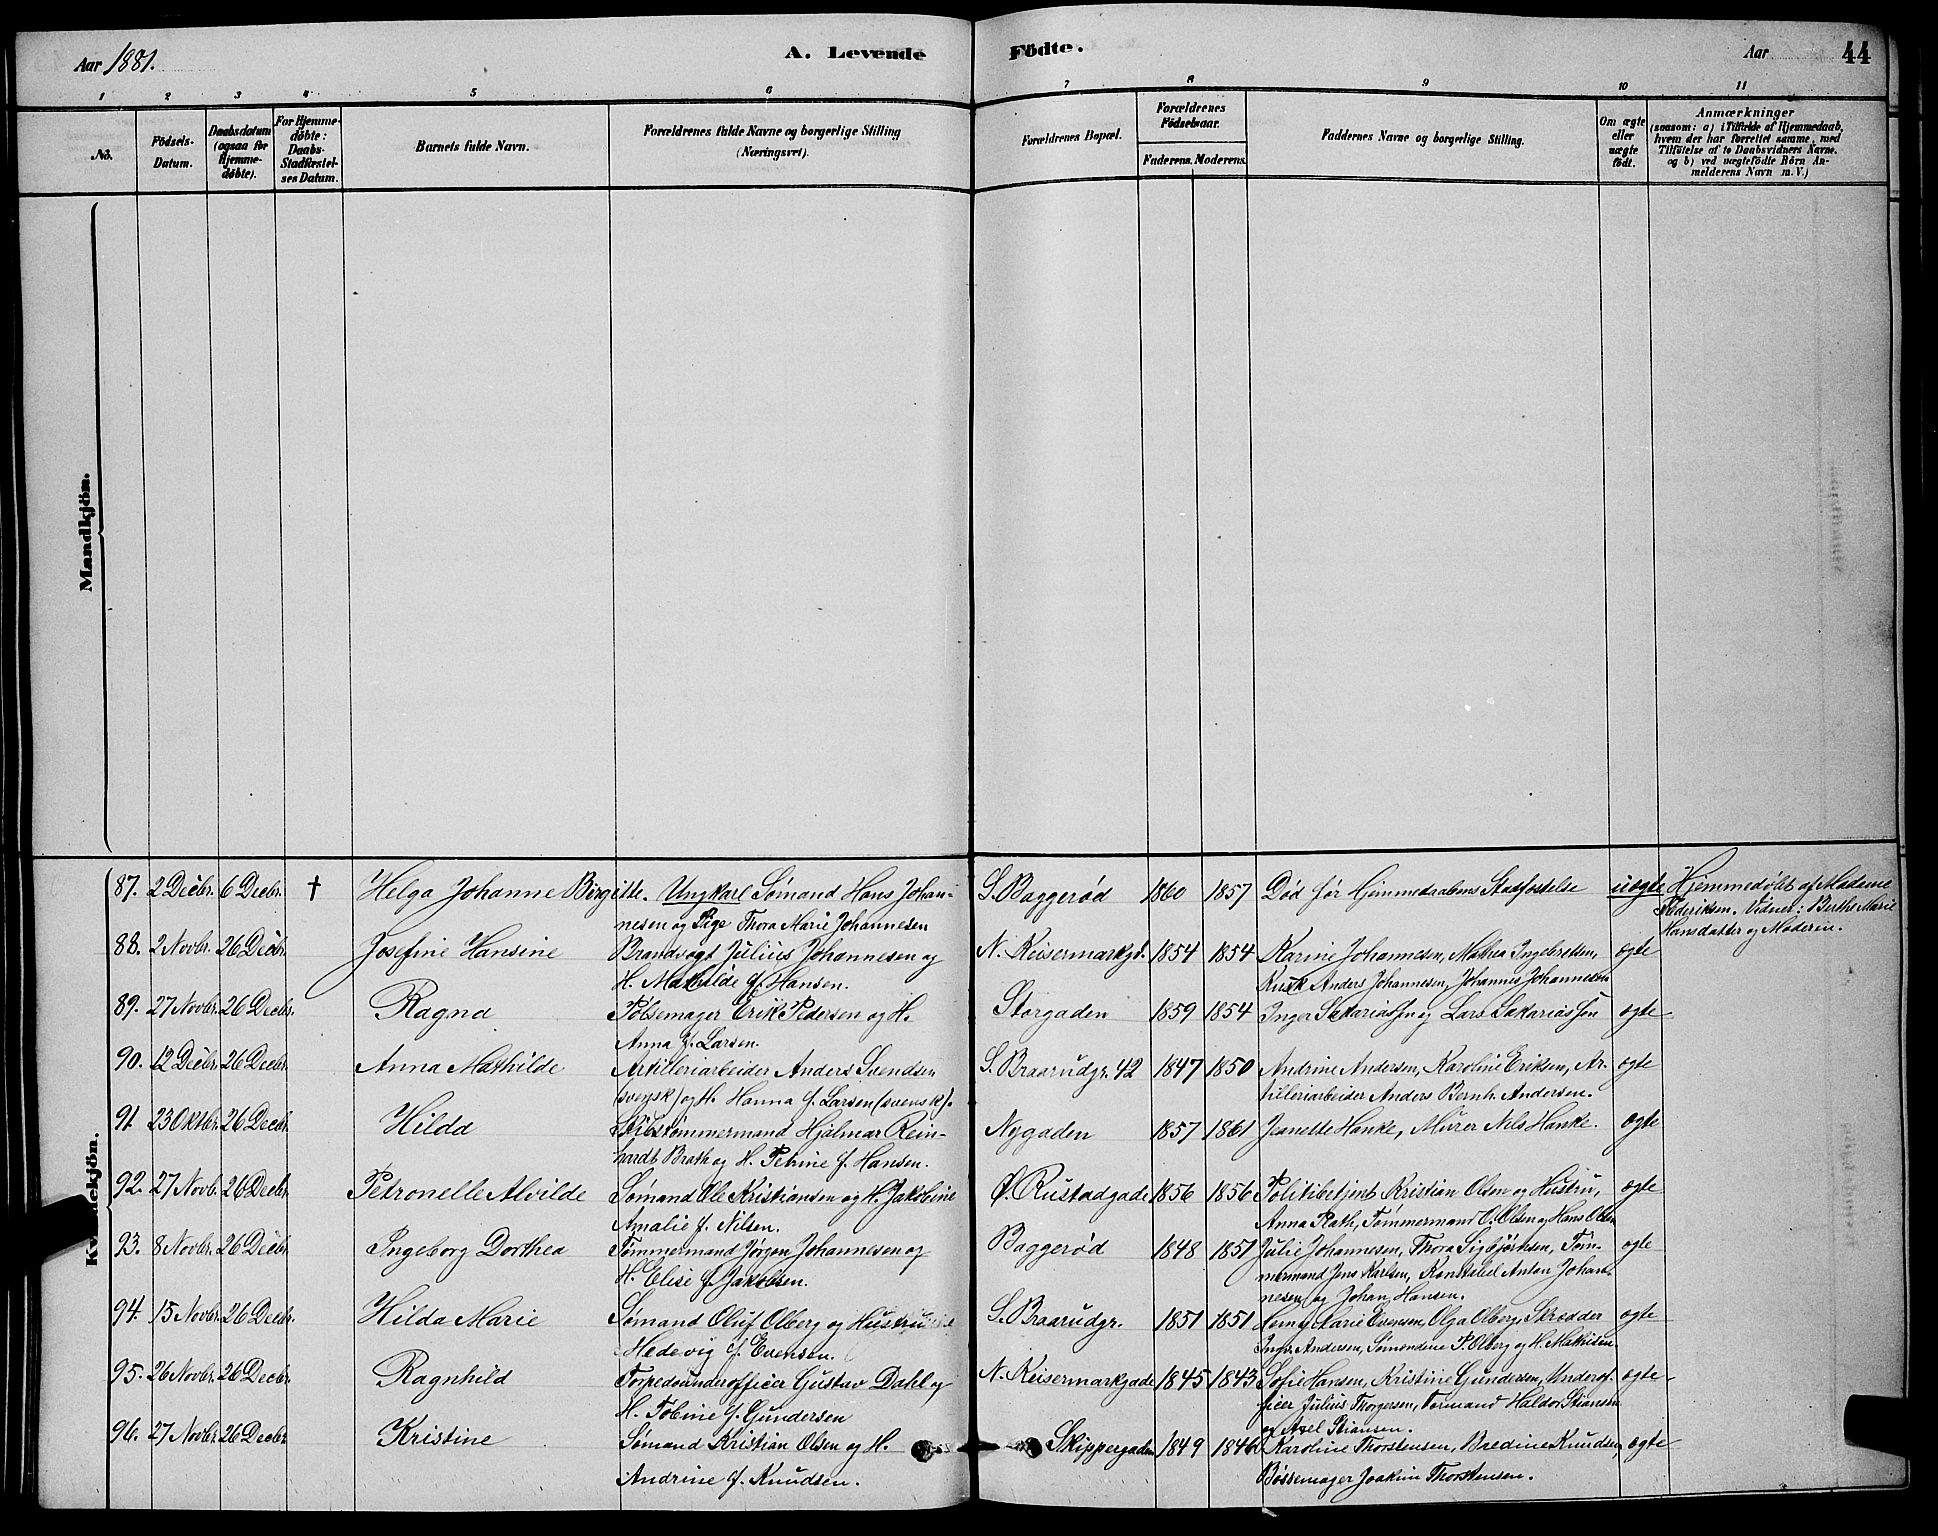 Aar 1881.
A. Levende
Födte.
Aar
44
1 2 3 4 5 6 7 8 9 10 11
No.
Födsels-
Datum.
Daabsdatum
(ogsaa for
Hjemme-
döbte).
For Hjemme-
döbte:
Daabs-
Stadfæstel-
ses Datum.
Barnets fulde Navn.
Forældrenes fulde Navne og borgerlige Stilling
(Næringsvei).
Forældrenes Bopæl.
Forældrenes
Födselsaar.
Faderens. Moderens.
Faddernes Navne og borgerlige Stilling.
Om ægte
eller
uægte
födt.
Anmærkninger
(saasom: a) i Tilfælde af Hjemmedaab,
hvem der har forrettet samme, med
Tilföielse af to Daabsvidners Navne,
og b) ved uægtefödte Börn An-
melderens Navn m.V.)
Mandkjön.
Kvindekjön.
87. 2 Decbr. 6 Decbr. † Helga Johanne Birgitte. Ungkarl Sømand Hans Johan- S. Baggerød 1860 1857 Død før Hjemmedaabens Statfæstelse uægte Hjemmedøbt af Madame
nesen og Pige Thora Marie Johannesen Frederiksen. Vidner: Berthe Marie
Hansdatter og Moderen.
88. 2 Novbr. 26 Decbr. Josefine Hansine Brandvagt Julius Johannesen og N. Keisermarkgd. 1854 1854 Karine Johannesen, Mathea Ingebretsen, ægte
H. Mathilde f. Hansen. Kusk Anders Johannesen, Johannes Johannesen
89. 27 Novbr. 26 Decbr. Ragna Pølsemager Erik Pedersen og H. Storgaden 1859 1854 Inger Sakariassen og Lars Sakariassen ægte
Anna f. Larsen.
90. 12 Decbr. 26 Decbr. Anna Mathilde Artilleriarbeider Anders Svendsen S. Braarudgr. 42 1847 1850 Andrine Andersen, Karoline Eriksen, Ar- ægte
(svensk) og H. Hanna f. Larsen (svensk). tilleriarbeider Anders Bernh. Andersen.
91. 23 Oktbr. 26 Decbr. Hilda Skibstømmermand Hjalmar Rein- Nygaden 1857 1861 Jeanette Hanke, Murer Nils Hanke. ægte
hardt Brath og H. Petrine f. Hansen.
92. 27 Novb. 26 Decbr. Petronelle Alvilde Sømand Ole Kristiansen og H. Jakobine Ø. Rustadgade 1856 1856 Politibetjent Kristian Olsen og Hustru, ægte
Amalie f. Nilsen. Anna Rath, Tømmermand O. Olsen og Hans Olsen
93. 8 Novbr. 26 Decbr. Ingeborg Dorthea Tømmermand Jørgen Johannesen og Baggerød 1848 1851 Julie Johannesen, Thora Sigbjørnsen, Tøm- ægte
H. Elise f. Jakobsen. mermand Jens Karlsen, Konstabel Anton Johan-
nesen og Johan Hansen.
94. 15 Novbr. 26 Decbr. Hilda Marie Sømand Oluf Olberg og Hustru S. Braarudgr. 1851 1851 Marie Evensen, Olga Olberg, Skrædder ægte
Hedevig f. Evensen. Ingv. Andersen, Sømændene P. Olberg og H. Mathisen
95. 26 Novbr. 26 Decbr. Ragnhild Torpedounderofficer Gustav Dahl og N. Keisermarkgade 1845 1843 Sofie Hansen, Kristine Gundersen, Underof- ægte
H. Tobine f. Gundersen ficer Julius Thorgersen, Formand Haldor Stiansen
og Axel Stiansen.
96. 27 Novbr. 26 Decbr. Kristine Sømand Kristian Olsen og H. Skippergaden 1849 1846 Karoline Thorstensen, Bredine Knudsen, ægte
Andrine f. Knudsen. Bøssemager Joakim Thorstensen.